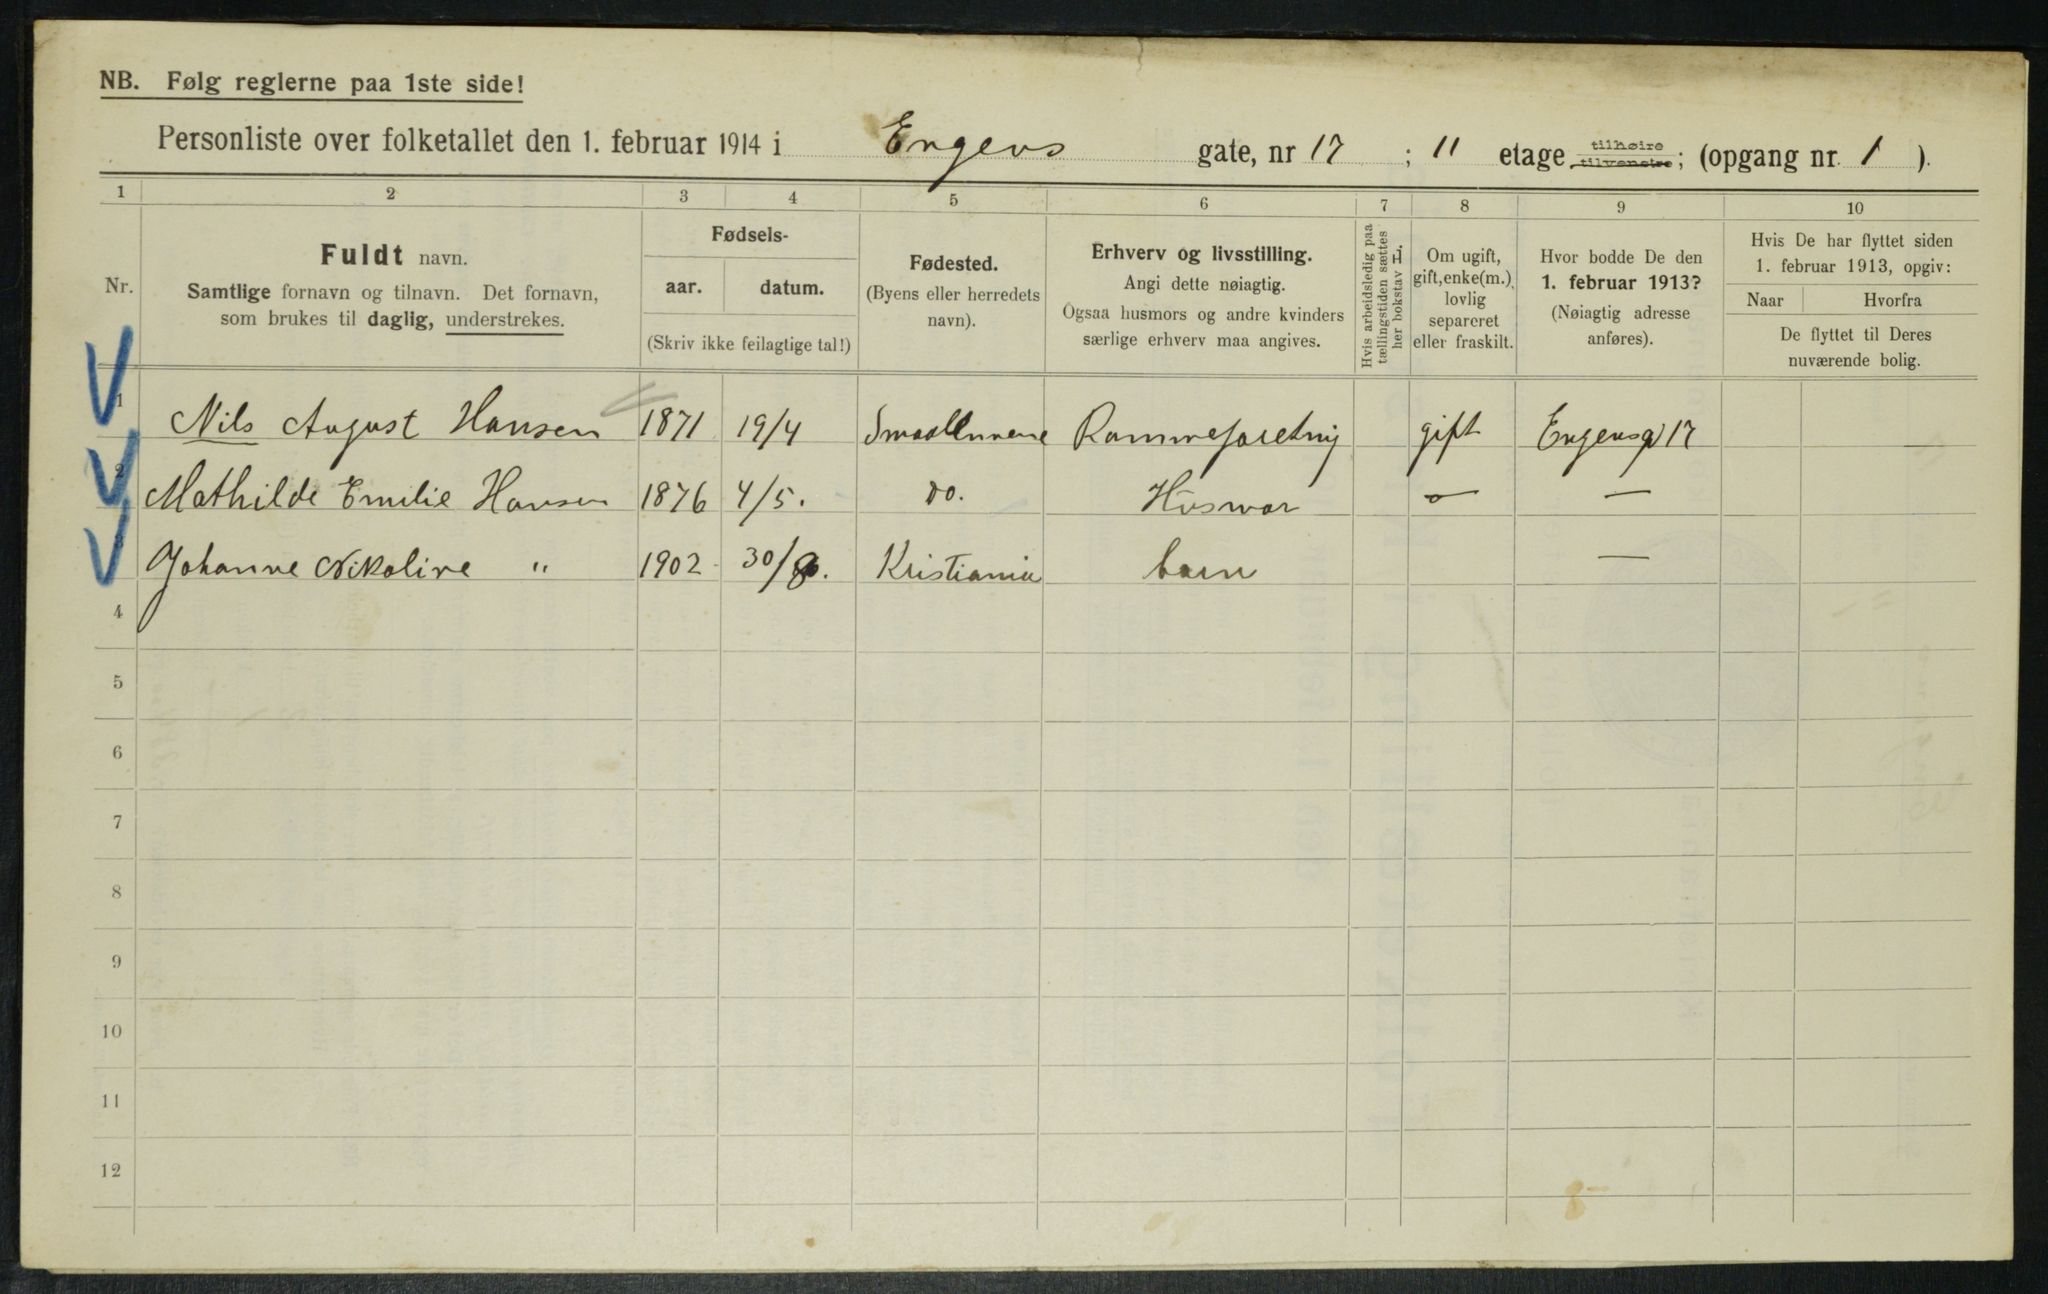 NB. Følg reglerne paa 1ste side!
Personliste over folketallet den 1. februar 1914 i Engens gate, nr 17 ; 11 etage tilhøire tilvenstre; (opgang nr. 1 ).
1 2 3 4 5 6 7 8 9 10
Nr.
Fuldt navn.
Samtlige fornavn og tilnavn. Det fornavn,
som brukes til daglig, understrekes.
Fødsels-
aar. datum.
(Skriv ikke feilagtige tal!)
Fødested.
(Byens eller herredets
navn).
Erhverv og livsstilling.
Angi dette nøiagtig.
Ogsaa husmors og andre kvinders
særlige erhverv maa angives.
Hvis arbeidsledig paa
tællingstiden sættes
her bokstav L.
Om ugift,
gift, enke(m.),
lovlig
separeret
eller fraskilt.
Hvor bodde De den
1. februar 1913?
(Nøiagtig adresse
anføres).
Hvis De har flyttet siden
1. februar 1913, opgiv:
Naar Hvorfra
De flyttet til Deres
nuværende bolig.
1 Nils August Hansen 1871 19/4 Smaalenene Rammeforetning gift Engensg 17 —
2 Mathilde Emilie Hansen 1876 4/5. do. Husmor — —
3 Johanne Nikoline " 1902 30/8. Kristiania barn —
4
5
6
7
8
9
10
11
12